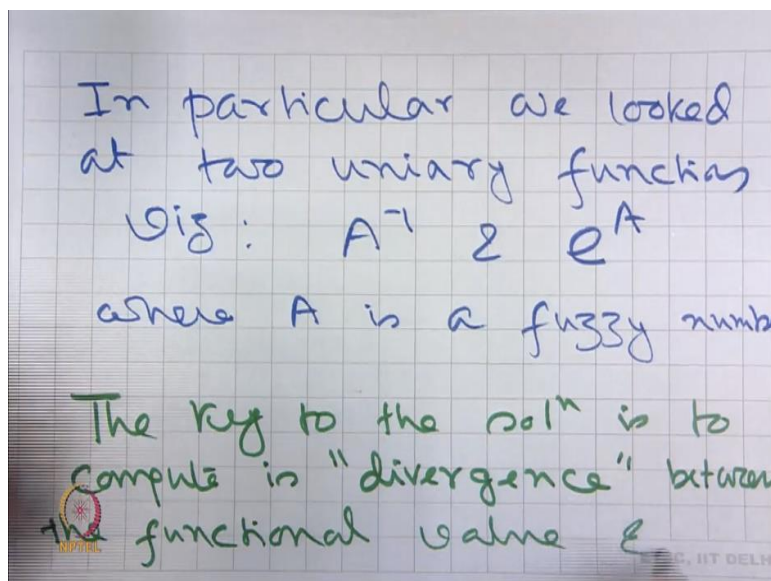 In particular we looked
at two uniary functions
viz : A⁻¹ & e^A
where A is a fuzzy numb
The key to the solⁿ is to
compute is "divergence" between
the functional value &
NPTEL
C, IIT DELH